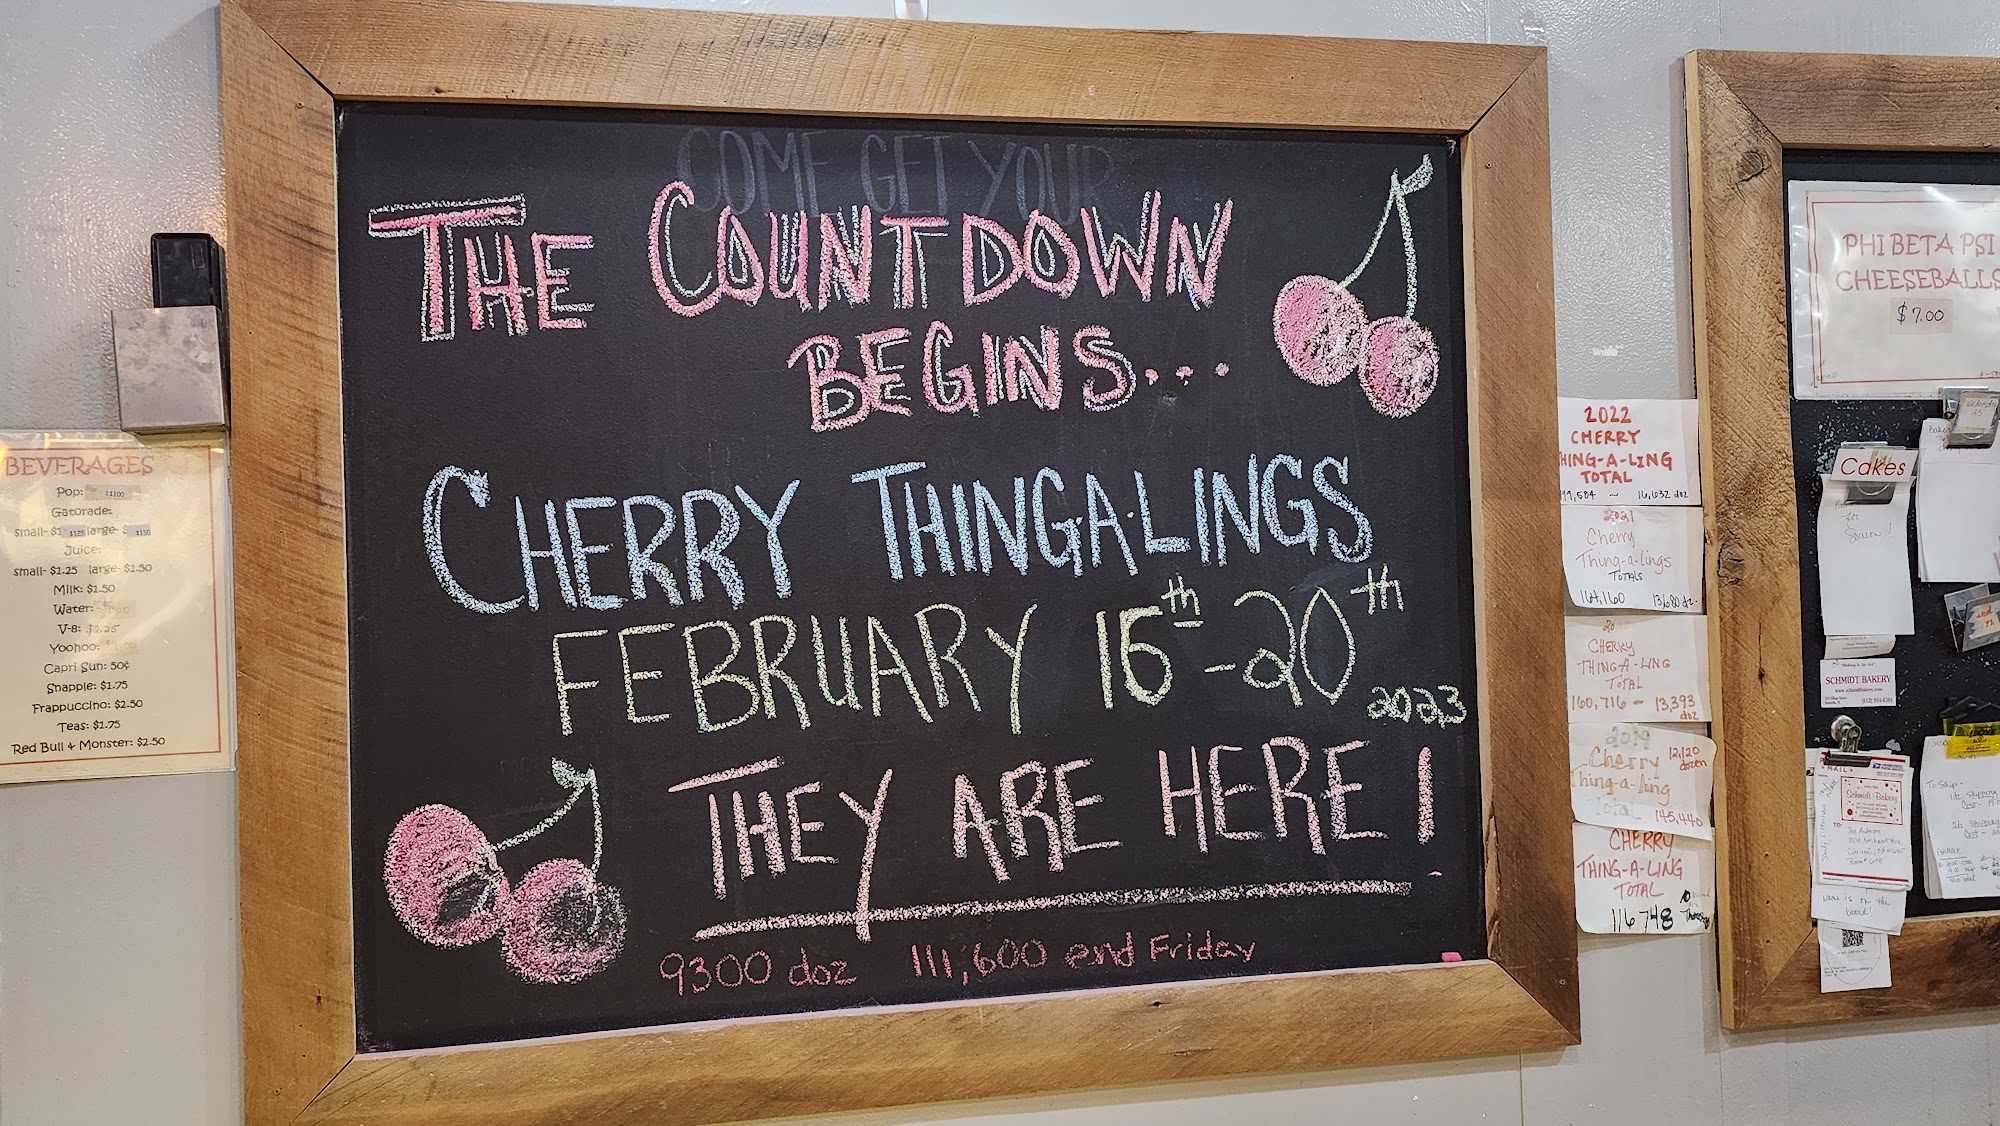 COME GET YOUR
THE COUNTDOWN
BEGINS...
CHERRY THING-A-LINGS
FEBRUARY 16th-20th
2023
THEY ARE HERE!
9300 doz 111,600 end Friday
BEVERAGES
Pop:
Gatorade:
small- large-
Juice:
small- $1.25 large- $1.50
Milk: $1.50
Water:
V-8:
Yoohoo:
Capri Sun: 50¢
Snapple: $1.75
Frappuccino: $2.50
Teas: $1.75
Red Bull & Monster: $2.50
2022
CHERRY
HING-A-LING
TOTAL
99,584 ~ 16,632 doz
2021
Cherry
Thing-a-lings
TOTALS
164,160 13,680 dz.
20
CHERRY
THING-A-LING
TOTAL
160,716 - 13,393
doz
2019
Cherry 12,120
dozen
Thing-a-ling
Total
145,440
CHERRY
THING-A-LING
TOTAL
116748
PHI BETA PSI
CHEESEBALLS
$7.00
Cakes
SCHMIDT BAKERY
MAIL
Schmidt Bakery
TO:
name is on the
board!
To Ship-